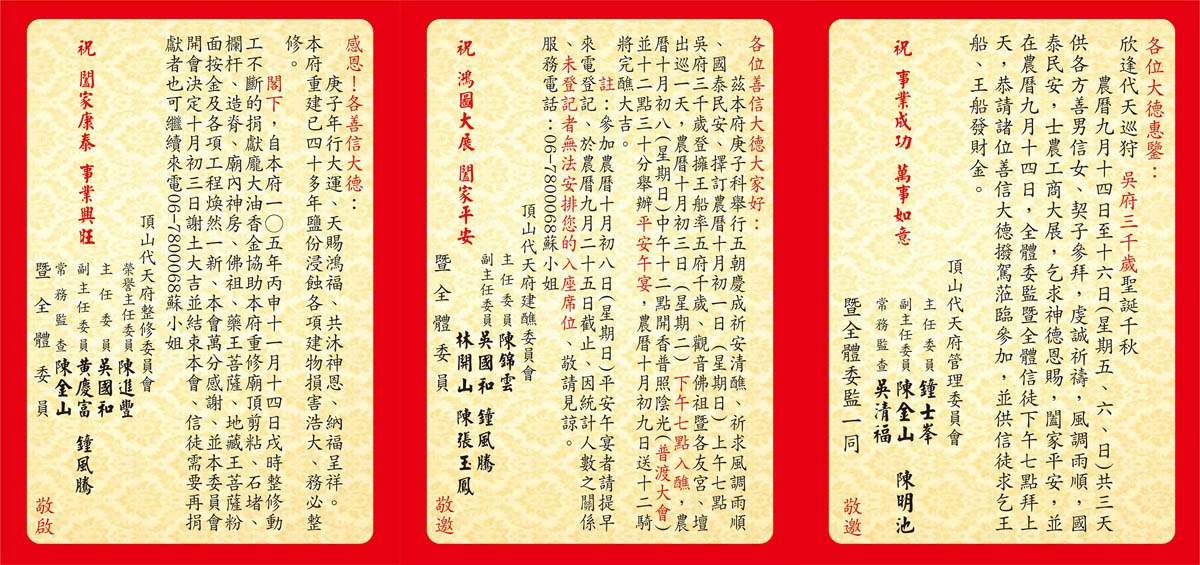 各位大德惠鑒：
欣逢代天巡狩　吳府三千歲聖誕千秋
農曆九月十四日至十六日(星期五、六、日)共三天
供各方善男信女、契子參拜，虔誠祈禱，風調雨順，國
泰民安，士農工商大展，乞求神德恩賜，闔家平安，並
在農曆九月十四日，全體委監暨全體信徒下午七點拜上
天，恭請諸位善信大德撥駕蒞臨參加，並供信徒求乞王
船、王船發財金。
祝　事業成功　萬事如意
頂山代天府管理委員會
主任委員　鐘士峯
副主任委員　陳金山　陳明池
常務監查　吳清福
暨全體委監一同
敬邀
各位善信大德大家好：
茲本府庚子科舉行五朝慶成祈安清醮、祈求風調雨順
、國泰民安、擇訂農曆十月初一日（星期日）上午七點
吳府三千歲登擁王船率五府千歲、觀音佛祖暨各友宮、壇
出巡一天，農曆十月初三日（星期二）下午七點入醮，農
曆十月初八（星期日）中午十二點開香普照陰光(普渡大會)
並十二點三十分舉辦平安午宴，農曆十月初九日送十二騎
將完醮大吉。
註：參加農曆十月初八日(星期日)平安午宴者請提早
來電登記、於農曆九月二十五日截止、因統計人數之關係
、未登記者無法安排您的入座席位、敬請見諒。
服務電話：06-7800068蘇小姐
祝　鴻圖大展　闔家平安
頂山代天府建醮委員會
主任委員　陳錦雲
副主任委員　吳國和　鐘風騰
林開山　陳張玉鳳
暨全體委員
敬邀
感恩！各善信大德：
庚子年行大運、天賜鴻福、共沐神恩、納福呈祥。
本府重建已四十多年鹽份浸蝕各項建物損害浩大、務必整
修。
閣下，自本府一〇五年丙申十一月十四日戌時整修動
工不斷的捐獻龐大油香金協助本府重修廟頂剪粘、石堵、
欄杆、造脊、廟內神房、佛祖、藥王菩薩、地藏王菩薩粉
面按金及各項工程煥然一新、本會萬分感謝、並本委員會
開會決定十月初三日謝土大吉並結束本會、信徒需要再捐
獻者也可繼續來電06-7800068蘇小姐
祝　闔家康泰　事業興旺
頂山代天府整修委員會
榮譽主任委員　陳進豐
主任委員　吳國和
副主任委員　黃慶富　鐘風騰
常務監查　陳金山
暨全體委員
敬啟